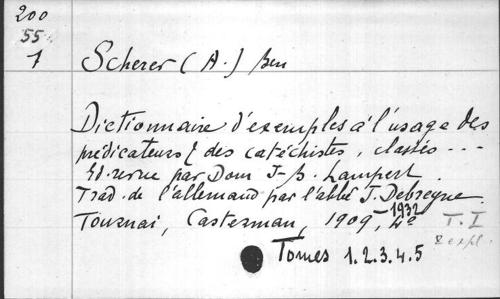 200
55
1
Scherer (A.) Ben
Dictionnaire d'exemples à l'usage des
prédicateurs & des catéchistes, classés ...
Ed. revue par Dom J-B. Lampert.
Trad. de l'allemand par l'abbé J. Debreyne.
Tournai, Casterman, 1909-1932, 4°
T. I
2 expl.
Tomes 1.2.3.4.5